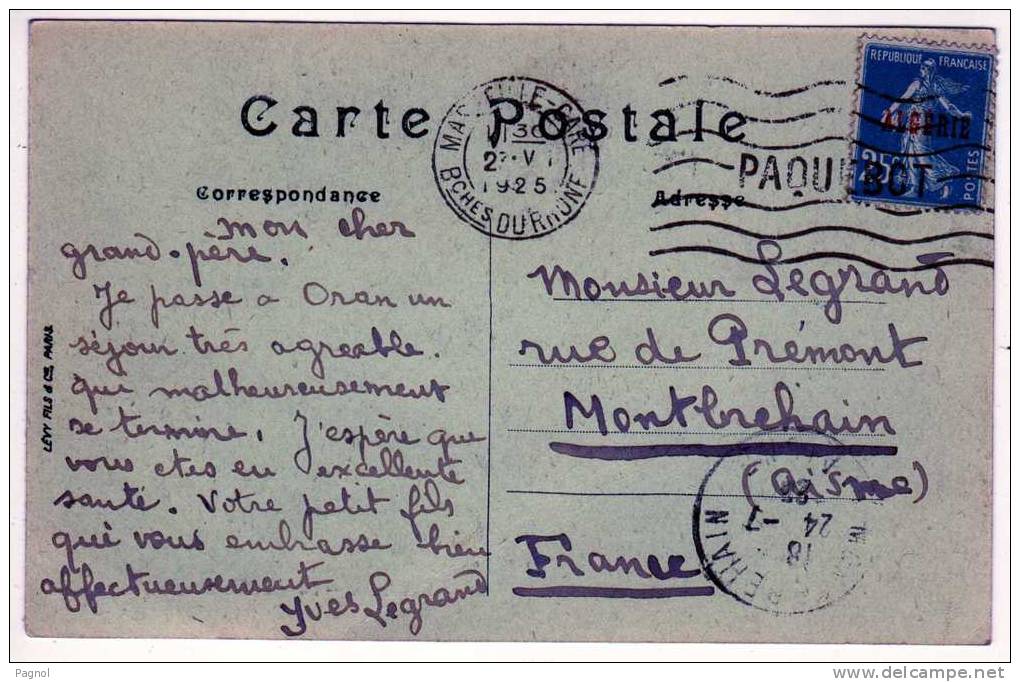 Carte Postale
MARSEILLE-GARE
1925
Bches DU RHÔNE
REPUBLIQUE FRANCAISE
ALGERIE
25c
POSTES
PAQUEBOT
Correspondance
Adresse
mon cher
grand-père.
Je passe a Oran un
séjour très agreable.
qui malheureusement
se termine. J'espère que
vous etes en excellente
santé. Votre petit fils
qui vous embrasse bien
affectueusement
Yves Legrand
LÉVY FILS & Cie, PARIS
Monsieur Legrand
rue de Prémont
Montbrehain
(Aisne)
France
18
24 -7
Pagnol
www.delcampe.net